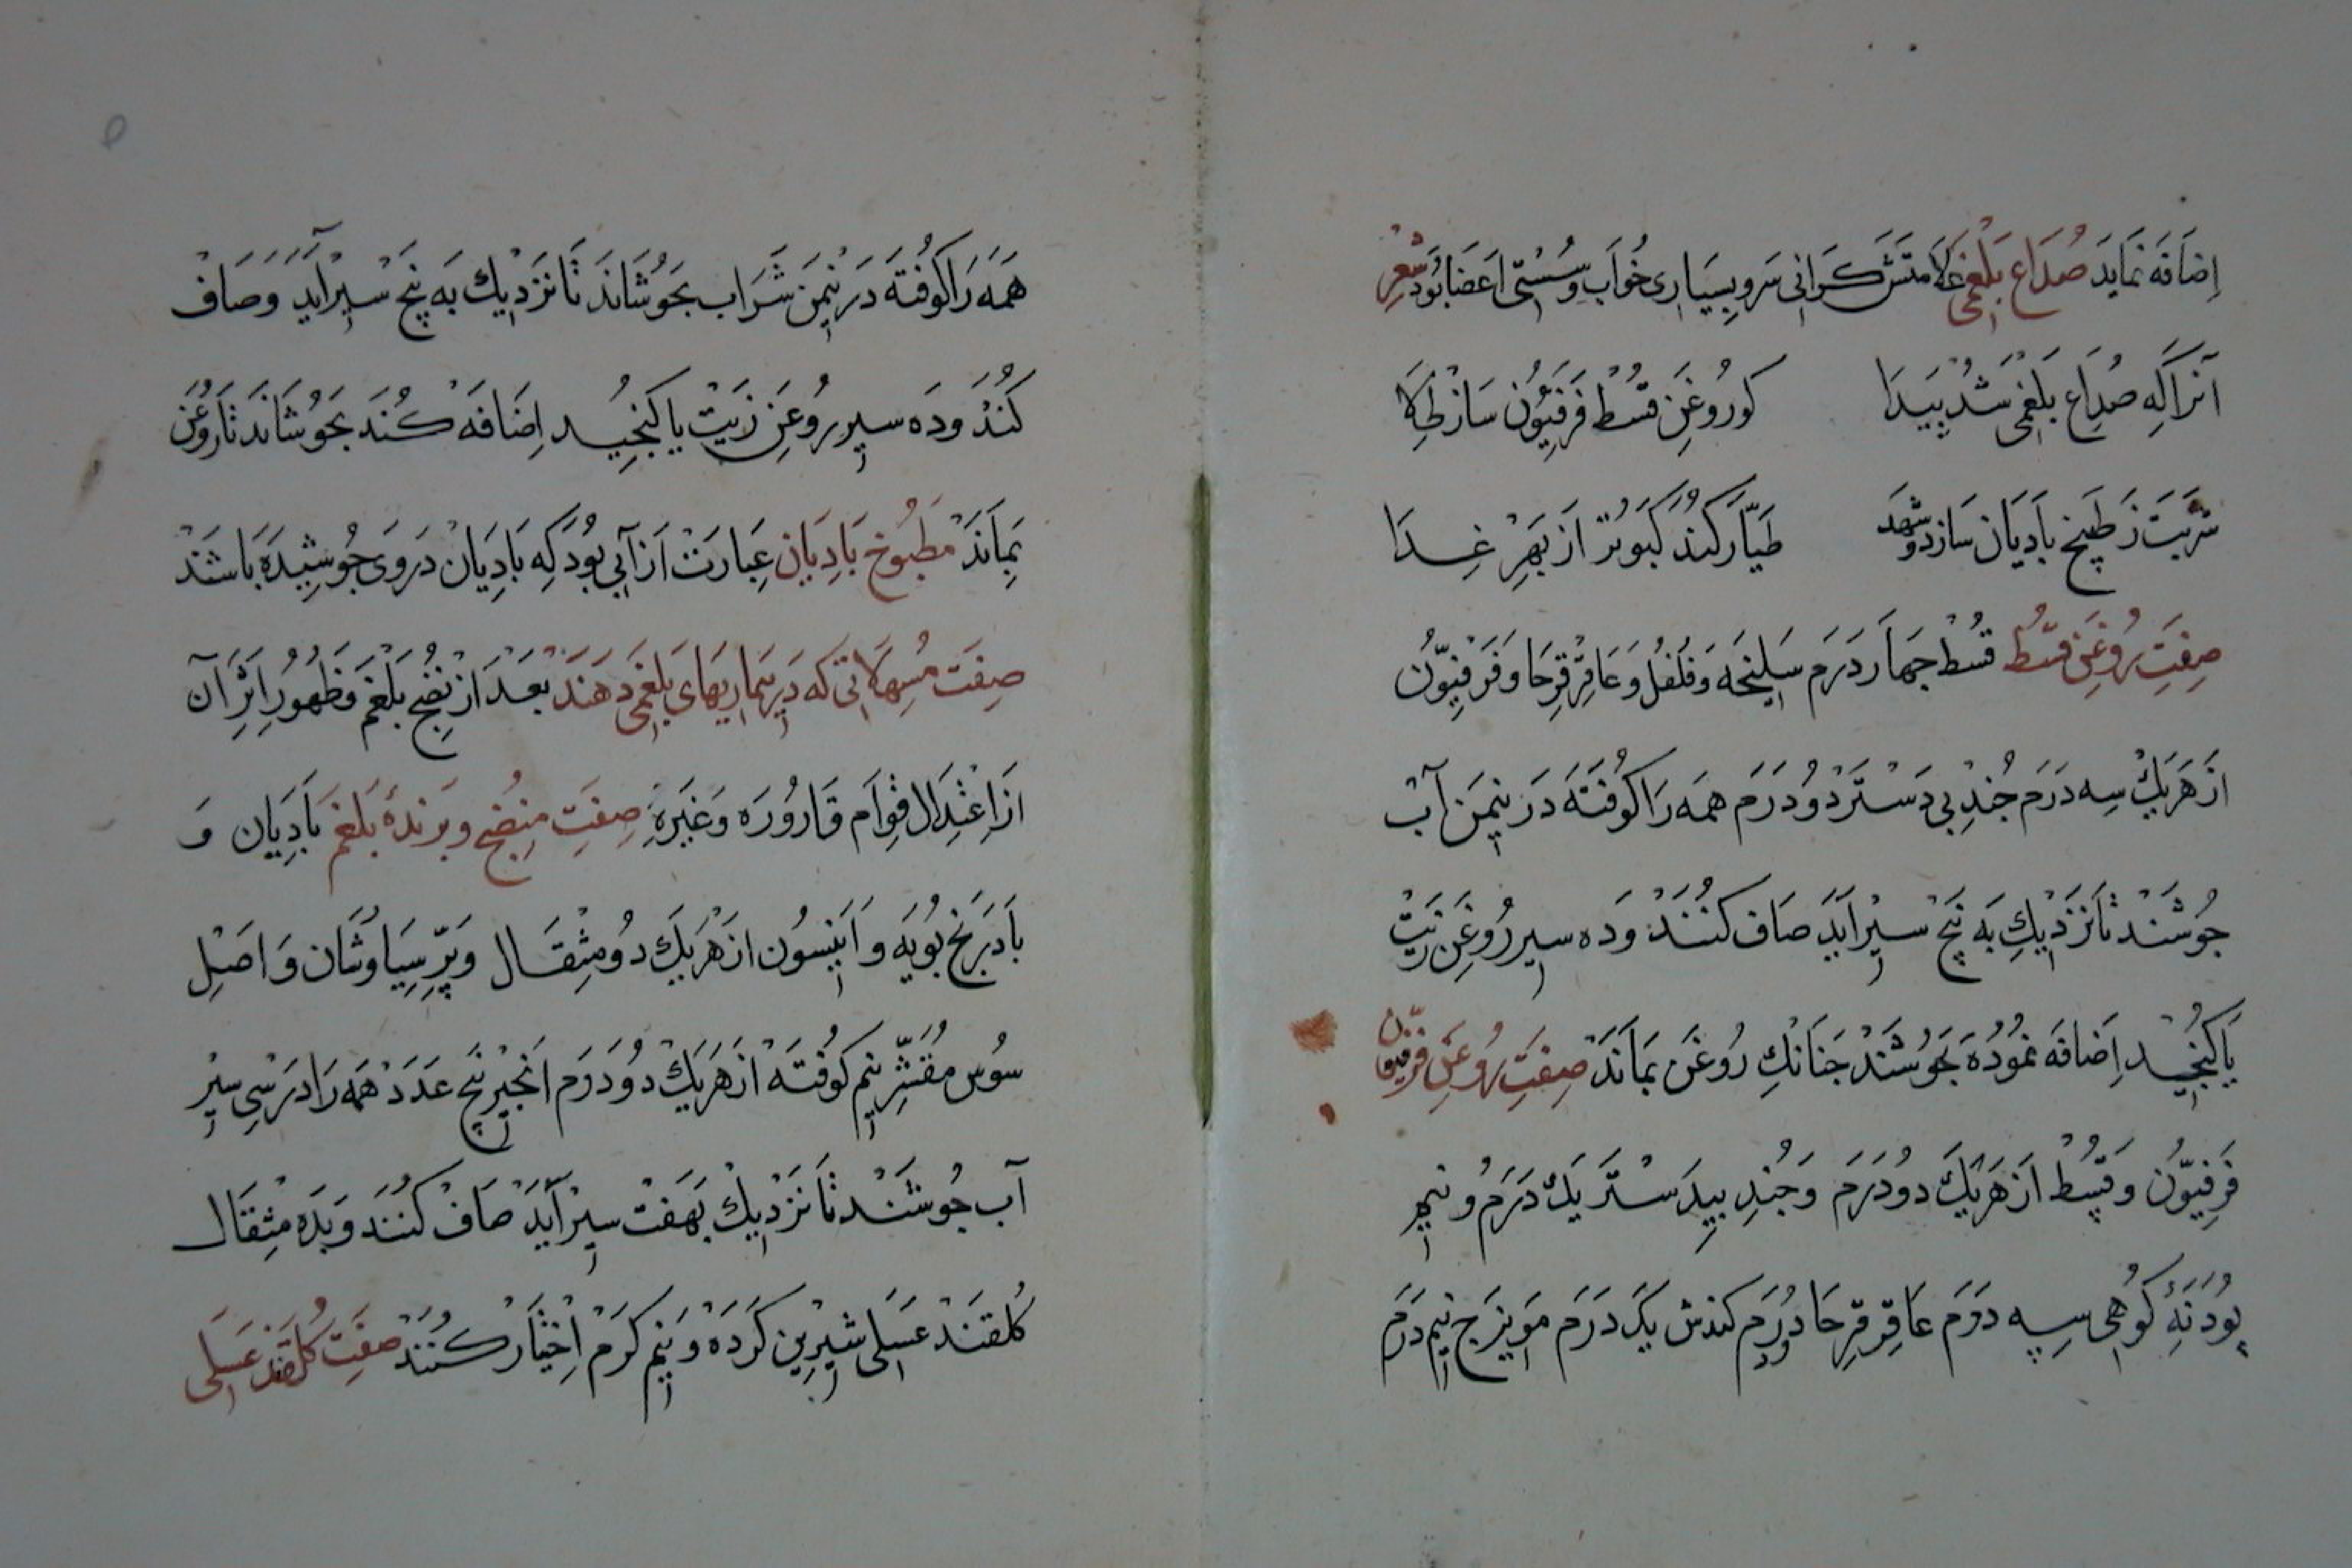 اضافه نماید صداع بلغمی علامتش کرانی سر و بسیاری خواب و سستی اعضا بود شعر
آنرا که صداع بلغمی شد پیدا کو روغن قسط فرفیون ساز طلا
شربت ز طبیخ بادیان سازد و شهد طیار کند کبوتر از بهر غدا
صفت روغن قسط قسط جهار درم سلیخه و فلفل و عاقرقرحا و فرفیون
از هر یک سه درم جند بی دستر دو درم همه را کوفته در نیمن آب
جوشند تا نزدیک به پنج سیر آید صاف کنند و ده سیر روغن زیت
یا کنجید اضافه نموده بجوشند جنانک روغن بماند صفت روغن فرفیون
فرفیون و قسط از هر یک دو درم و جند بیدستر یک درم و نیم
پودنۀ کوهی سه درم عاقرقرحا دو درم کندش یک درم مویزج نیم درم
همه را کوفته در نیمن شراب بجوشاند تا نزدیک به پنج سیر آید و صاف
کنند و ده سیر روغن زیت یا کنجید اضافه کند بجوشاند تا روغن
بماند مطبوخ بادیان عبارت از آبی بود که بادیان در وی جوشیده باشند
صفت مسهلاتی که در بیماریهای بلغمی دهند بعد از نضج بلغم و ظهور اثر آن
از اعتدال قوام قاروره و غیره صفت منضج و برندۀ بلغم بادیان و
بادرنج بویه و انیسون از هر یک دو مثقال و پر سیاوشان و اصل
سوس مقشر نیم کوفته از هر یک دو درم انجیر پنج عدد همه را در سی سیر
آب جوشند تا نزدیک بهفت سیر آید صاف کنند و بده مثقال
کلقند عسلی شیرین کرده و نیم کرم اختیار کنند صفت کلقند عسلی